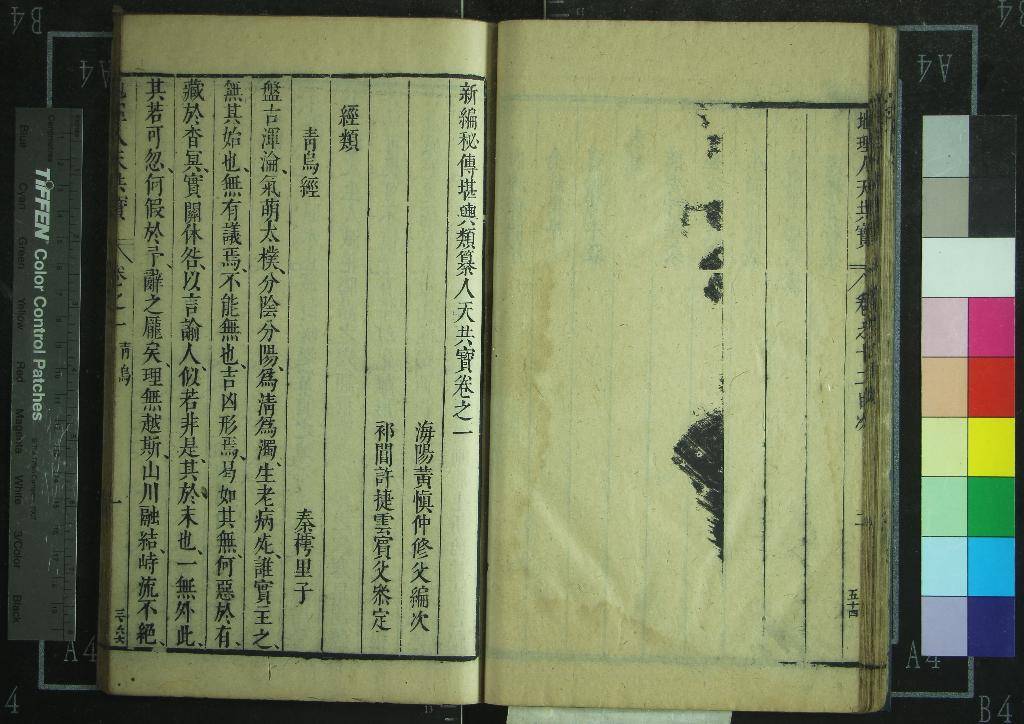 地理人天共寶
卷之十二目次
二
五十四
新編秘傳堪輿類纂人天共寶卷之一
海陽黃慎仲修父編次
祁閶許捷雲賓父叅定
經類
青烏經
秦樗里子
盤古渾淪氣萌太樸分陰分陽為清為濁生老病死誰實主之
無其始也無有議焉不能無也吉凶形焉曷如其無何惡於有
藏於杳冥實關休咎以言諭人似若非是其於末也一無外此
其若可忽何假於予辭之厖矣理無越斯山川融結峙流不絕
人天共寶
卷之一
青烏
一
TIFFEN Color Control Patches
Blue
Cyan
Green
Yellow
Red
Magenta
White
3/Color
Black
A4
A4
A4
A4
B4
B4
4